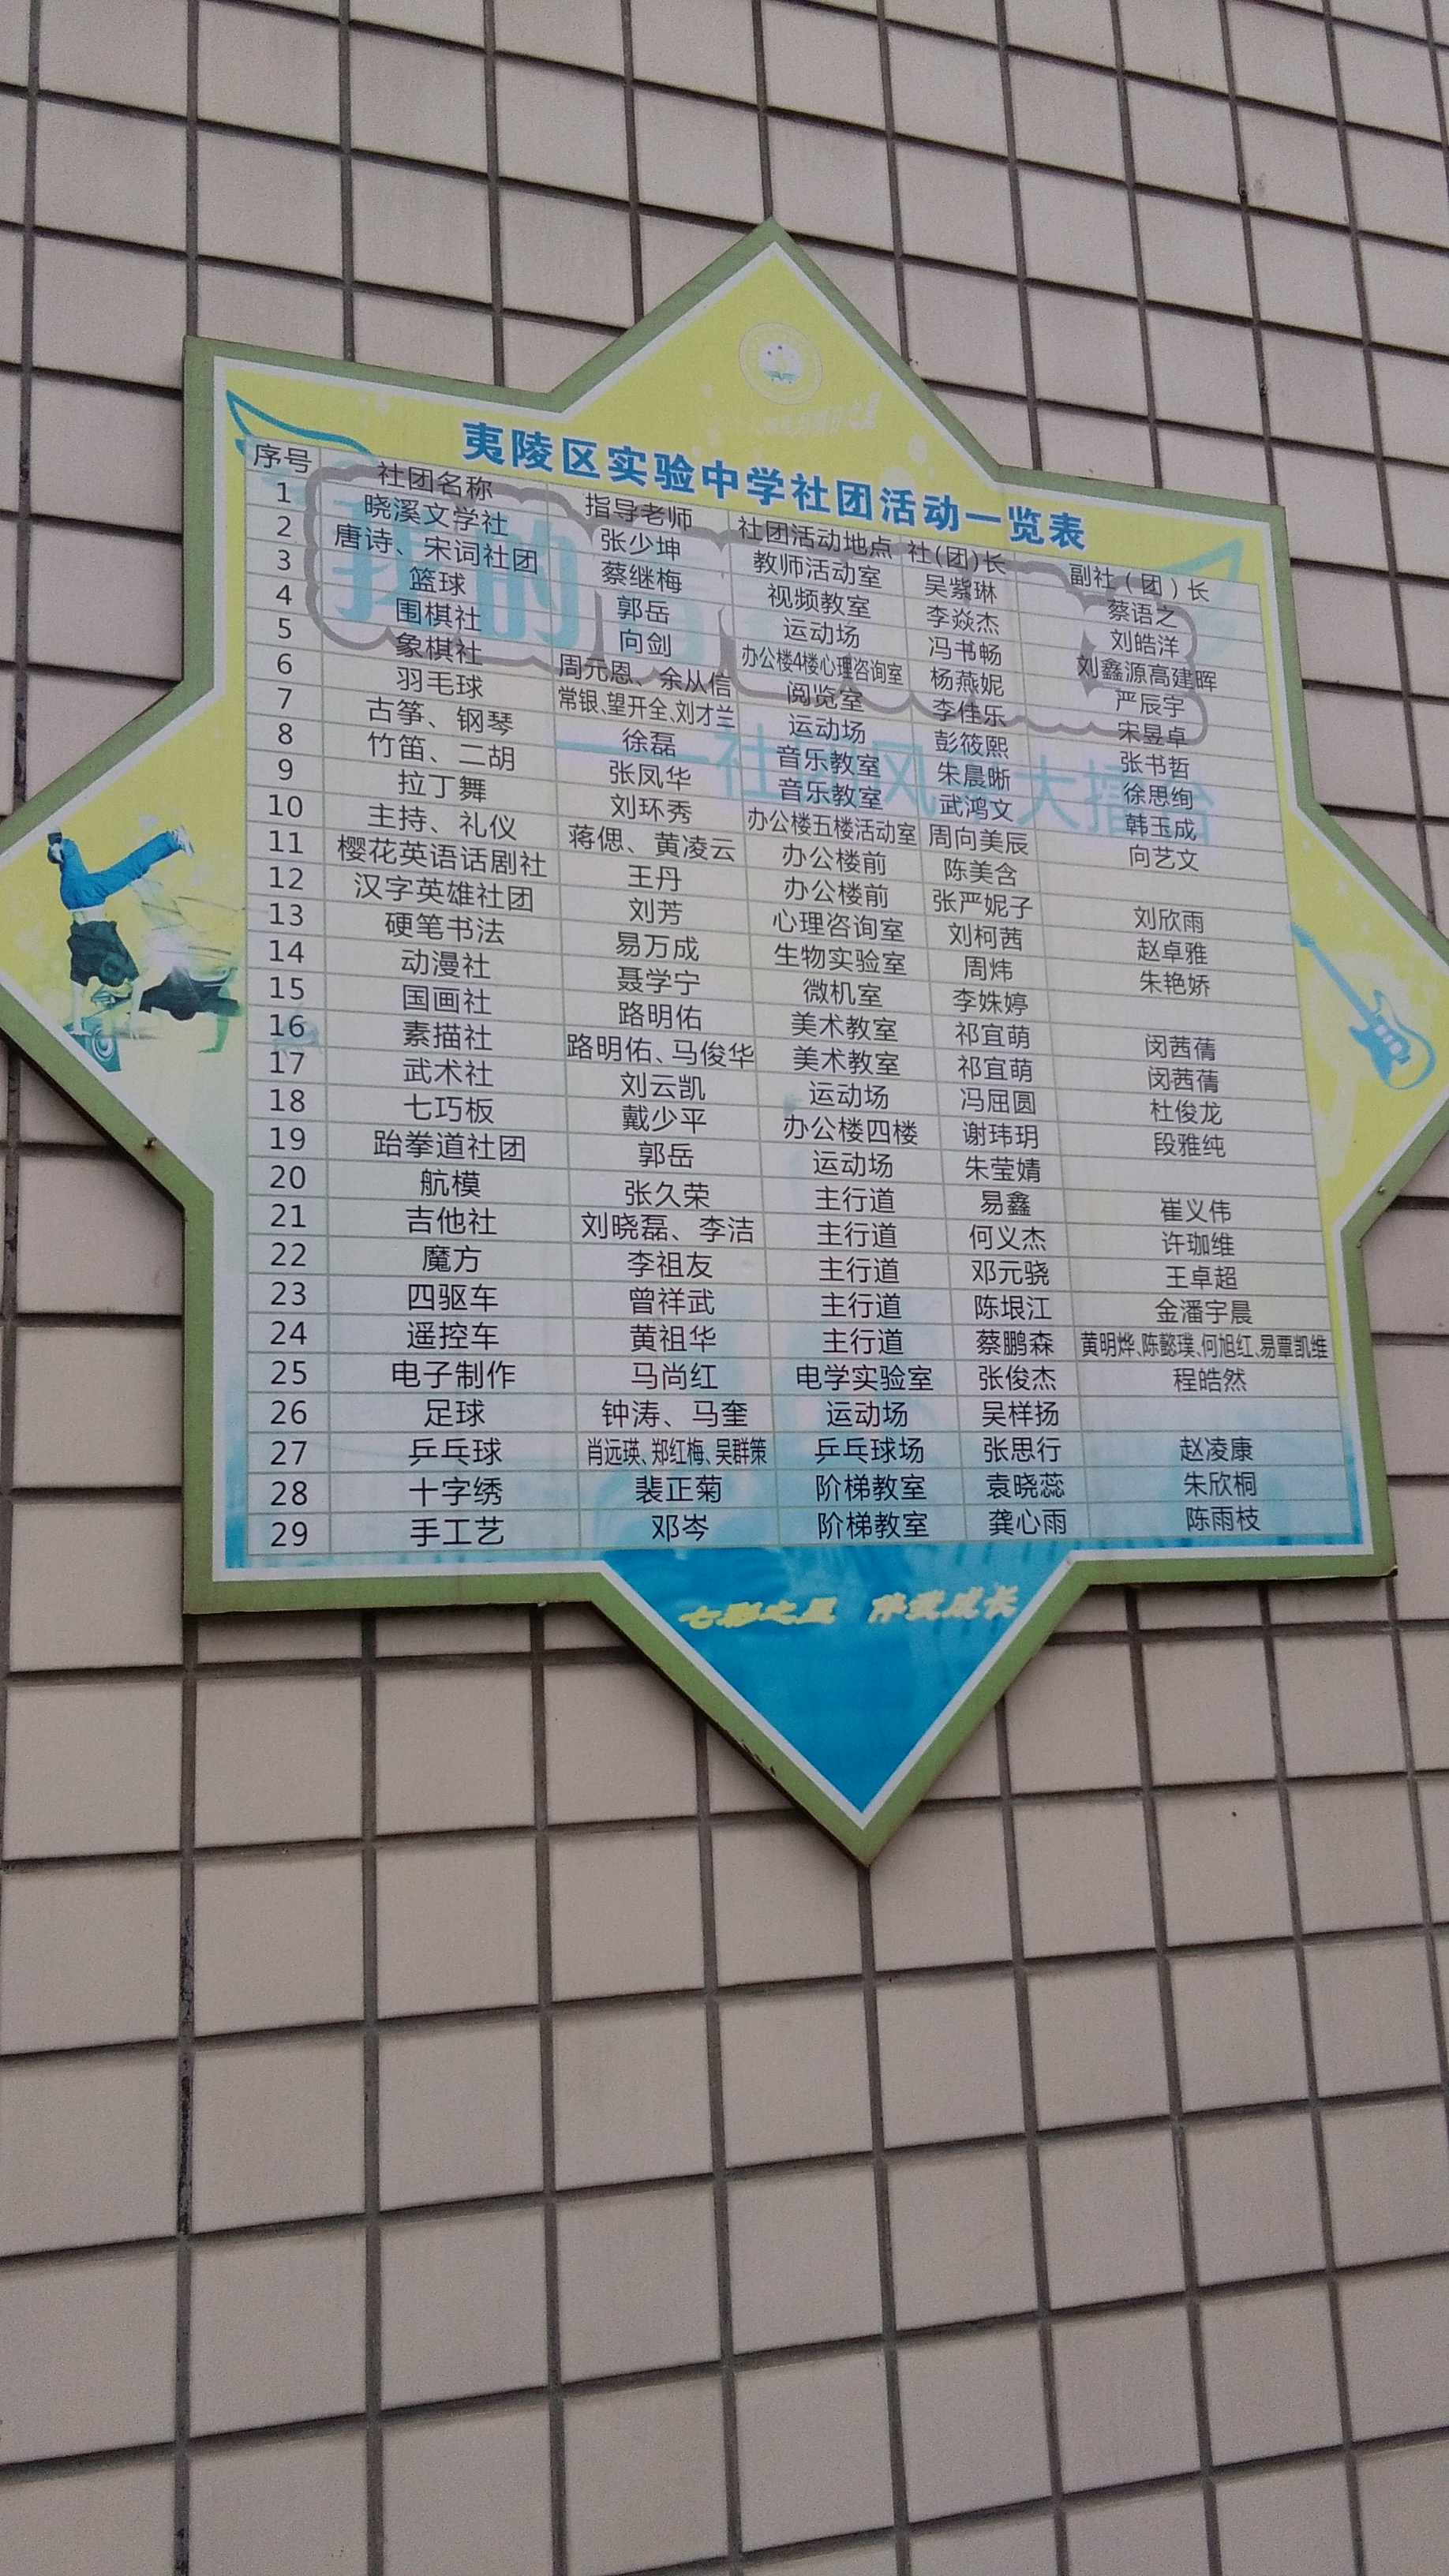 夷陵区实验中学社团活动一览表
序号 社团名称 指导老师 社团活动地点 社(团)长 副社（团）长
1 晓溪文学社 张少坤 教师活动室 吴紫琳 蔡语之
2 唐诗、宋词社团 蔡继梅 视频教室 李焱杰 刘皓洋
3 篮球 郭岳 运动场 冯书畅 刘鑫源高建晖
4 围棋社 向剑 办公楼4楼心理咨询室 杨燕妮 严辰宇
5 象棋社 周元恩、余从信 阅览室 李佳乐 宋昱卓
6 羽毛球 常银、望开全、刘才兰 运动场 彭筱熙 张书哲
7 古筝、钢琴 徐磊 音乐教室 朱晨晰 徐思绚
8 竹笛、二胡 张凤华 音乐教室 武鸿文 韩玉成
9 拉丁舞 刘环秀 办公楼五楼活动室 周向美辰 向艺文
10 主持、礼仪 蒋偲、黄凌云 办公楼前 陈美含
11 樱花英语话剧社 王丹 办公楼前 张严妮子 刘欣雨
12 汉字英雄社团 刘芳 心理咨询室 刘柯茜 赵卓雅
13 硬笔书法 易万成 生物实验室 周炜 朱艳娇
14 动漫社 聂学宁 微机室 李姝婷
15 国画社 路明佑 美术教室 祁宜萌 闵茜蒨
16 素描社 路明佑、马俊华 美术教室 祁宜萌 闵茜蒨
17 武术社 刘云凯 运动场 冯屈圆 杜俊龙
18 七巧板 戴少平 办公楼四楼 谢玮玥 段雅纯
19 跆拳道社团 郭岳 运动场 朱莹婧
20 航模 张久荣 主行道 易鑫 崔义伟
21 吉他社 刘晓磊、李洁 主行道 何义杰 许珈维
22 魔方 李祖友 主行道 邓元骁 王卓超
23 四驱车 曾祥武 主行道 陈垠江 金潘宇晨
24 遥控车 黄祖华 主行道 蔡鹏森 黄明烨、陈懿璞、何旭红、易覃凯维
25 电子制作 马尚红 电学实验室 张俊杰 程皓然
26 足球 钟涛、马奎 运动场 吴样扬
27 乒乓球 肖远瑛、郑红梅、吴群策 乒乓球场 张思行 赵凌康
28 十字绣 裴正菊 阶梯教室 袁晓蕊 朱欣桐
29 手工艺 邓岑 阶梯教室 龚心雨 陈雨枝
七彩之星 伴我成长